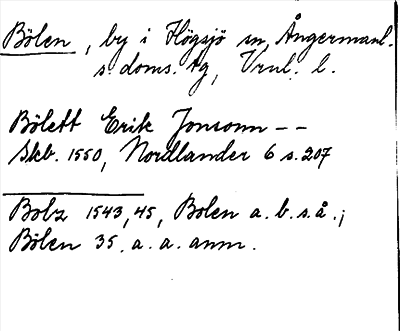 Bölen, by i Högsjö sn, Ångermanl.
s. doms. tg, Vrnl. l.
Bölett Erik Jonsonn - -
Skb. 1550, Nordlander 6 s. 207
Bolz 1543, 45, Bolen a. b. s. å.;
Bölen 35. a. a. anm.